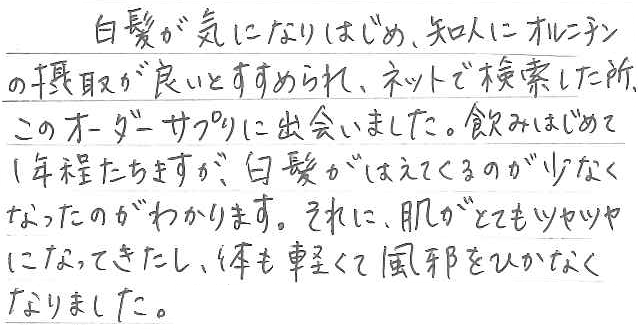 白髪が気になりはじめ、知人にオルニチン
の摂取が良いとすすめられ、ネットで検索した所、
このオーダーサプリに出会いました。飲みはじめて
1年程たちますが、白髪がはえてくるのが少なく
なったのがわかります。それに、肌がとてもツヤツヤ
になってきたし、体も軽くて風邪をひかなく
なりました。